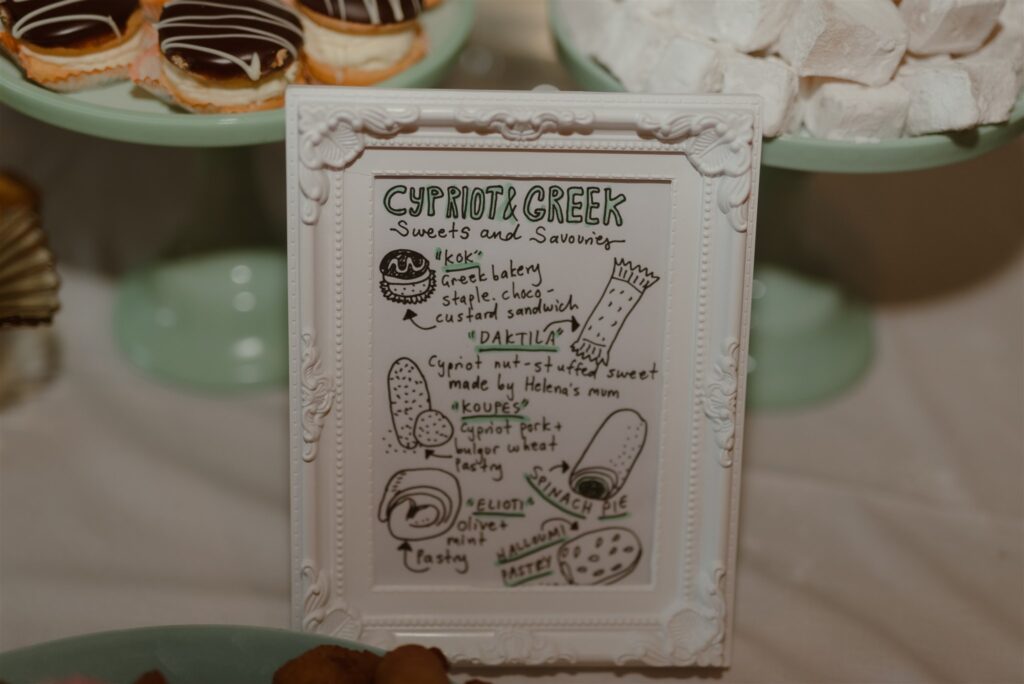 CYPRIOT & GREEK
Sweets and Savouries
"KOK"
Greek bakery
staple. choco-
custard sandwich
"DAKTILA"
Cypriot nut-stuffed sweet
made by Helena's mum
"KOUPES"
Cypriot pork +
bulgur wheat
Pastry
SPINACH PIE
"ELIOTI"
Olive +
mint
Pastry
HALLOUMI
PASTRY